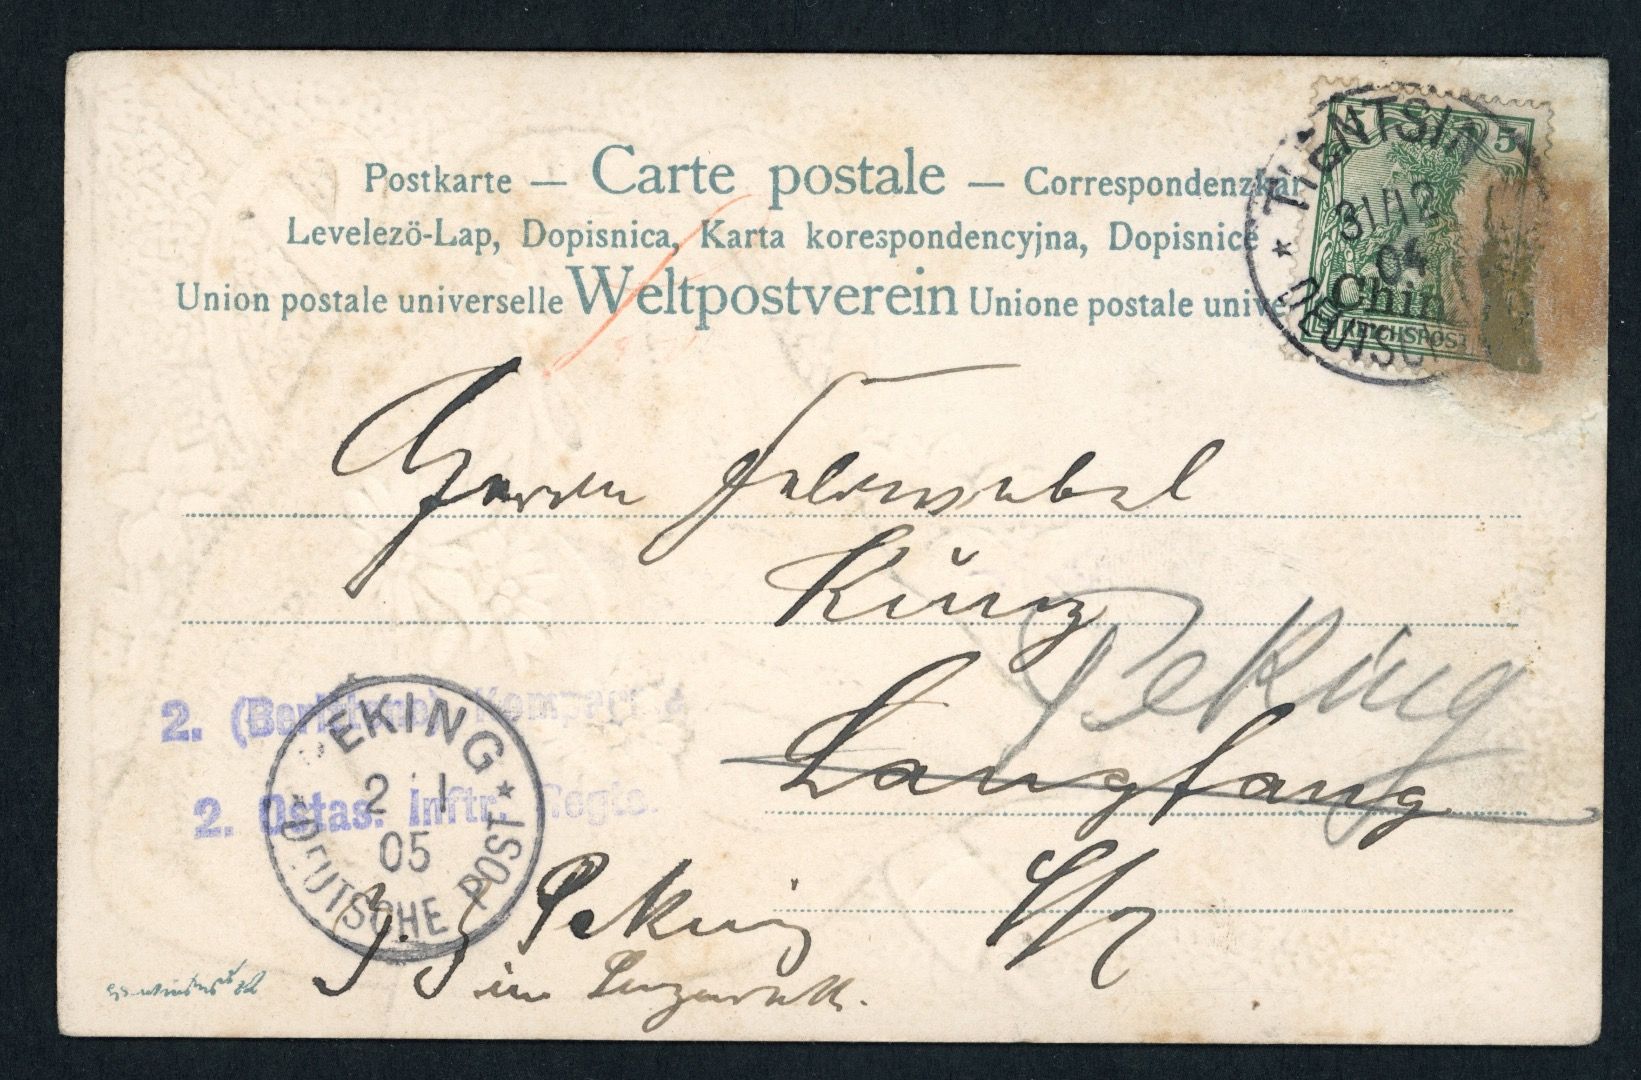 Postkarte — Carte postale — Correspondenzkar
Levelezö-Lap, Dopisnica, Karta korespondencyjna, Dopisnice
Union postale universelle Weltpostverein Unione postale unive
TIENTSIN
31/12
04
DEUTSCH
5 5
Chin
REICHSPOST
Herrn Feldwebel
Kunz
Peking
Langfang
2. (Berittene) Kompagnie
2. Ostas. Inftr. Regts.
PEKING
2 1
05
DEUTSCHE POST
z. Z. Peking
im